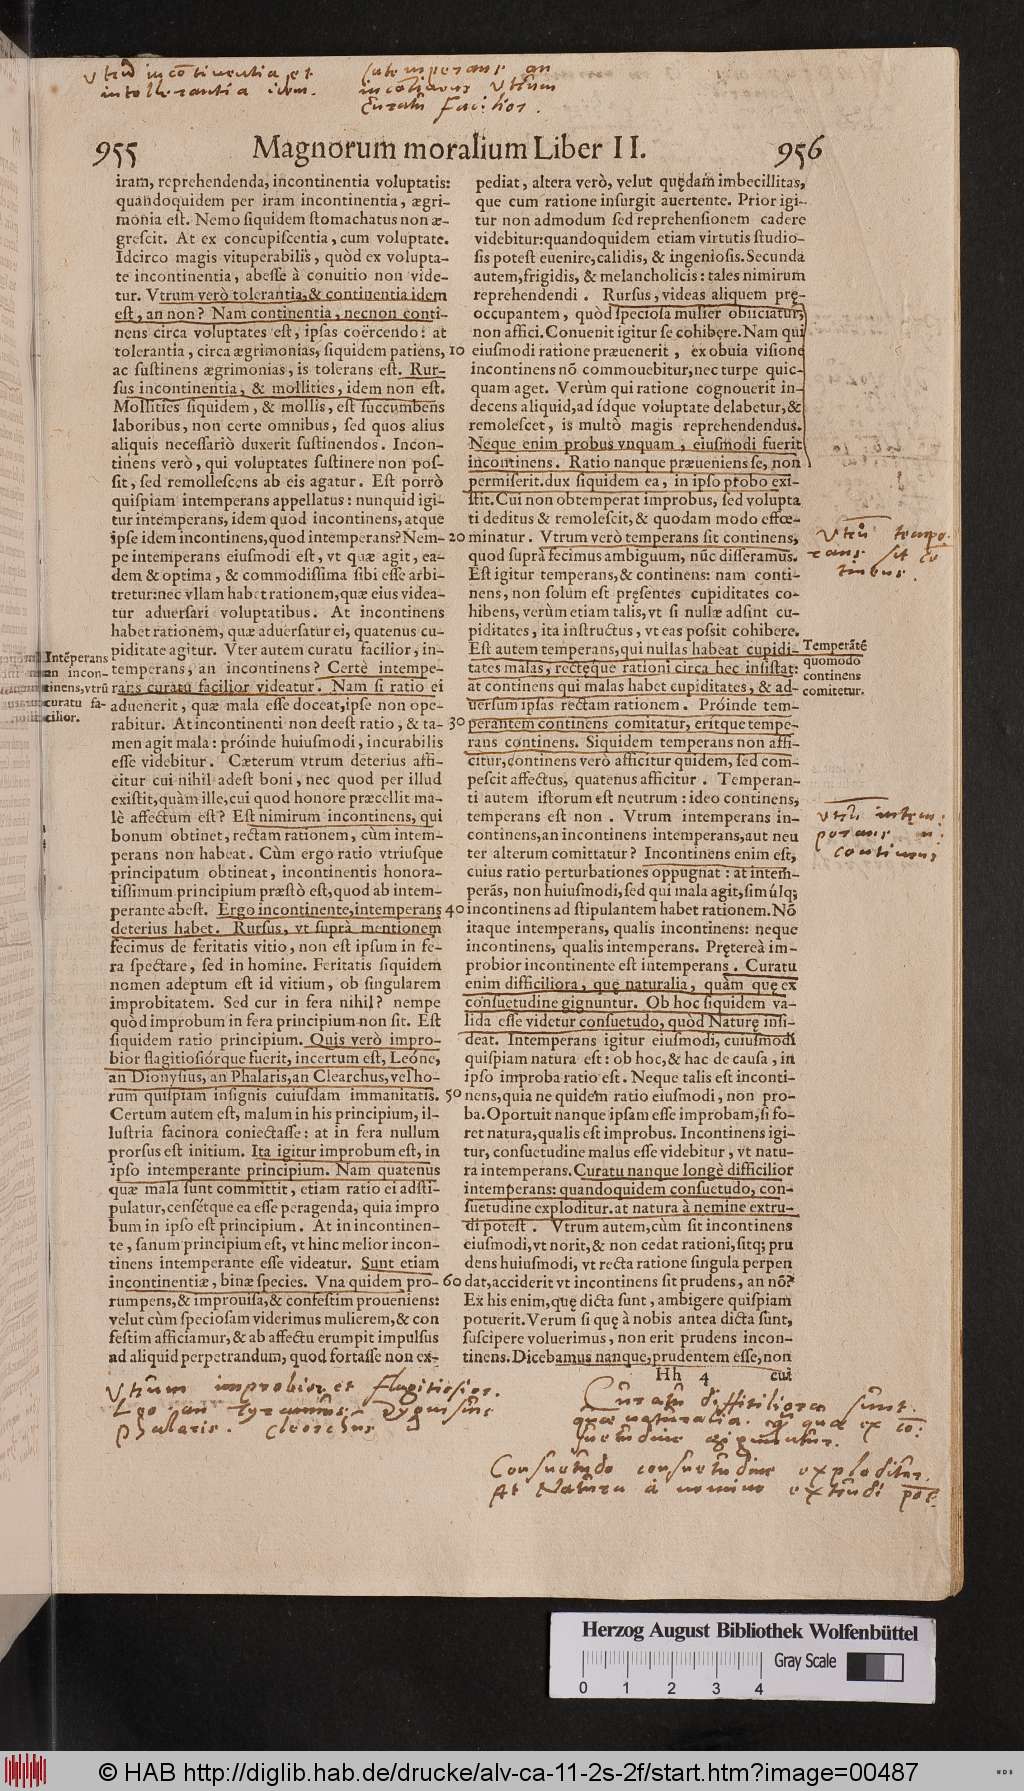 Utrum incontinentia et
intollerantia idem.
Intemperans an
incontinens Utrum
Curatu Facilior.
955
Magnorum moralium Liber II.
956
iram, reprehendenda, incontinentia voluptatis:
quandoquidem per iram incontinentia, ægri-
monia est. Nemo siquidem stomachatus non æ-
grescit. At ex concupiscentia, cum voluptate.
Idcirco magis vituperabilis, quòd ex volupta-
te incontinentia, abesse à conuitio non vide-
tur. Vtrum verò tolerantia, & continentia idem
est, an non? Nam continentia, necnon conti-
nens circa voluptates est, ipsas coërcendo: at
tolerantia, circa ægrimonias, siquidem patiens,
ac sustinens ægrimonias, is tolerans est. Rur-
sus incontinentia, & mollities, idem non est.
Mollities siquidem, & mollis, est succumbens
laboribus, non certe omnibus, sed quos alius
aliquis necessariò duxerit sustinendos. Incon-
tinens verò, qui voluptates sustinere non pos-
sit, sed remollescens ab eis agatur. Est porrò
quispiam intemperans appellatus: nunquid igi-
tur intemperans, idem quod incontinens, atque
ipse idem incontinens, quod intemperans? Nem-
pe intemperans eiusmodi est, vt quæ agit, ea-
dem & optima, & commodissima sibi esse arbi-
tretur: nec vllam habet rationem, quæ eius videa-
tur aduersari voluptatibus. At incontinens
habet rationem, quæ aduersatur ei, quatenus cu-
piditate agitur. Vter autem curatu facilior, in-
temperans, an incontinens? Certè intempe-
rans curatu facilior videatur. Nam si ratio ei
aduenerit, quæ mala esse doceat, ipse non ope-
rabitur. At incontinenti non deest ratio, & ta-
men agit mala: próinde huiusmodi, incurabilis
esse videbitur. Cæterum vtrum deterius affi-
citur cui nihil adest boni, nec quod per illud
existit, quàm ille, cui quod honore præcellit ma-
lè affectum est? Est nimirum incontinens, qui
bonum obtinet, rectam rationem, cùm intem-
perans non habeat. Cùm ergo ratio vtriusque
principatum obtineat, incontinentis honora-
tissimum principium præstò est, quod ab intem-
perante abest. Ergo incontinente, intemperans
deterius habet. Rursus, vt suprà mentionem
fecimus de feritatis vitio, non est ipsum in fe-
ra spectare, sed in homine. Feritatis siquidem
nomen adeptum est id vitium, ob singularem
improbitatem. Sed cur in fera nihil? nempe
quòd improbum in fera principium non sit. Est
siquidem ratio principium. Quis verò impro-
bior flagitiosiórque fuerit, incertum est, Leóne,
an Dionysius, an Phalaris, an Clearchus, vel ho-
rum quispiam insignis cuiusdam immanitatis.
Certum autem est, malum in his principium, il-
lustria facinora coniectasse: at in fera nullum
prorsus est initium. Ita igitur improbum est, in
ipso intemperante principium. Nam quatenus
quæ mala sunt committit, etiam ratio ei adsti-
pulatur, censétque ea esse peragenda, quia impro
bum in ipso est principium. At in incontinen-
te, sanum principium est, vt hinc melior incon-
tinens intemperante esse videatur. Sunt etiam
incontinentiæ, binæ species. Vna quidem pro-
rumpens, & improuisa, & confestim proueniens:
velut cùm speciosam viderimus mulierem, & con
festim afficiamur, & ab affectu erumpit impulsus
ad aliquid perpetrandum, quod fortasse non ex-
Intēperans
an incon-
tinens, vtrū
curatu fa-
cilior.
10
20
30
40
50
60
pediat, altera verò, velut quędam imbecillitas,
que cum ratione insurgit auertente. Prior igi-
tur non admodum sed reprehensionem cadere
videbitur: quandoquidem etiam virtutis studio-
sis potest euenire, calidis, & ingeniosis. Secunda
autem, frigidis, & melancholicis: tales nimirum
reprehendendi. Rursus, videas aliquem prę-
occupantem, quòd speciosa mulier obiiciatur,
non affici. Conuenit igitur se cohibere. Nam qui
eiusmodi ratione præuenerit, ex obuia visione
incontinens nō commouebitur, nec turpe quic-
quam aget. Verùm qui ratione cognouerit in-
decens aliquid, ad ídque voluptate delabetur, &
remolescet, is multò magis reprehendendus.
Neque enim probus vnquam, eiusmodi fuerit
incontinens. Ratio nanque præueniens se, non
permiserit. dux siquidem ea, in ipso probo exi-
stit. Cui non obtemperat improbus, sed volupta
ti deditus & remolescit, & quodam modo effœ-
minatur. Vtrum verò temperans sit continens,
quod suprà fecimus ambiguum, nūc disseramus.
Est igitur temperans, & continens: nam conti-
nens, non solum est pręsentes cupiditates co-
hibens, verùm etiam talis, vt si nullæ adsint cu-
piditates, ita instructus, vt eas possit cohibere.
Est autem temperans, qui nullas habeat cupidi-
tates malas, rectęque rationi circa hec insistat:
at continens qui malas habet cupiditates, & ad-
uersum ipsas rectam rationem. Próinde tem-
perantem continens comitatur, erítque tempe-
rans continens. Siquidem temperans non affi-
citur, continens verò afficitur quidem, sed com-
pescit affectus, quatenus afficitur. Temperan-
ti autem istorum est neutrum: ideo continens,
temperans est non. Vtrum intemperans in-
continens, an incontinens intemperans, aut neu
ter alterum comittatur? Incontinens enim est,
cuius ratio perturbationes oppugnat: at intem-
perās, non huiusmodi, sed qui mala agit, simúlq;
incontinens ad stipulantem habet rationem. Nō
itaque intemperans, qualis incontinens: neque
incontinens, qualis intemperans. Pręterea im-
probior incontinente est intemperans. Curatu
enim difficiliora, quę naturalia, quàm quę ex
consuetudine gignuntur. Ob hoc siquidem va-
lida esse videtur consuetudo, quòd Naturę insi-
deat. Intemperans igitur eiusmodi, cuiusmodi
quispiam natura est: ob hoc, & hac de causa, in
ipso improba ratio est. Neque talis est inconti-
nens, quia ne quidem ratio eiusmodi, non pro-
ba. Oportuit nanque ipsam esse improbam, si fo-
ret natura, qualis est improbus. Incontinens igi-
tur, consuetudine malus esse videbitur, vt natu-
ra intemperans. Curatu nanque longè difficilior
intemperans: quandoquidem consuetudo, con-
suetudine exploditur. at natura à nemine extru-
di potest. Vtrum autem, cùm sit incontinens
eiusmodi, vt norit, & non cedat rationi, sitq; pru
dens huiusmodi, vt recta ratione singula perpen
dat, acciderit vt incontinens sit prudens, an nō?
Ex his enim, quę dicta sunt, ambigere quispiam
potuerit. Verum si quę à nobis antea dicta sunt,
suscipere voluerimus, non erit prudens incon-
tinens. Dicebamus nanque, prudentem esse, non
Hh 4
cui
Utrū tempe-
rans sit cō
tinens.
Temperātē
quomodo
continens
comitetur.
Utrū intem:
perans in:
continens
Utrum improbior et Flagitiosior.
Leo an tyrannus Dyonisius
Phalaris. Cleorchus
Curatu difficiliora sunt.
quæ naturalia. quā quæ ex cō:
suetudine gignuntur.
Consuetudo consuetudine exploditur.
At Natura à nemine extrudi pot.
Herzog August Bibliothek Wolfenbüttel
Gray Scale
0 1 2 3 4
© HAB http://diglib.hab.de/drucke/alv-ca-11-2s-2f/start.htm?image=00487